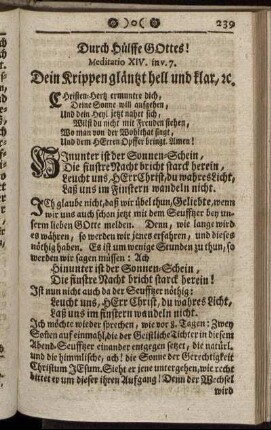 )o( 239
Durch Hülffe GOttes!
Meditatio XIV. in v. 7.
Dein Krippen gläntzt hell und klar, ꝛc.
CHristen-Hertz ermuntre dich,
Deine Sonne will aufgehen,
Und dein Heyl jetzt nahet sich,
Wilst du nicht mit Freuden stehen,
Wo man von der Wohlthat singt,
Und dem HErren Opffer bringt. Amen!
HInunter ist der Sonnen-Schein,
Die finstre Nacht bricht starck herein,
Leucht uns, HErr Christ, du wahres Licht,
Laß uns im Finstern wandeln nicht.
ICh glaube nicht, daß wir übel thun, Geliebte, wenn
wir uns auch schon jetzt mit dem Seuffzer bey un-
serm lieben GOtte melden. Denn, wie lange wird
es währen, so werden wir jenes erfahren, und dieses
nöthig haben. Es ist um wenige Stunden zu thun, so
werden wir sagen müssen: Ach
Hinunter ist der Sonnen-Schein,
Die finstre Nacht bricht starck herein!
Ist nun nicht auch da der Seuffzer nöthig:
Leucht uns, HErr Christ, du wahres Licht,
Laß uns im finstern wandeln nicht.
Ich möchte wieder sprechen, wie vor 8. Tagen: Zwey
Sonnen auf einmahl, die der Geistliche Tichter in diesem
Abend-Seuffzer einander entgegen setzet, die natürl.
und die himmlische, ach! die Sonne der Gerechtigkeit
Christum JEsum. Sieht er jene untergehen, wie recht
bittet er um dieser ihren Aufgang! Denn der Wechsel
wird